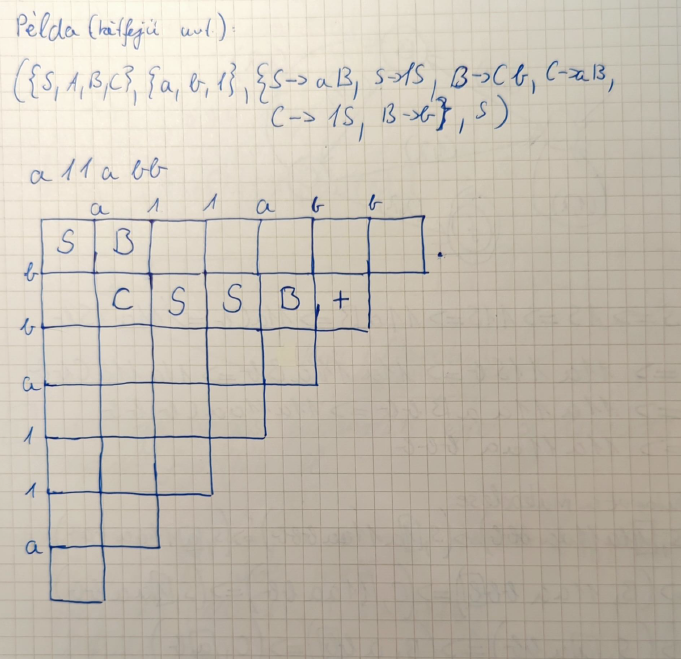 Példa (kétfejű aut.):
({S, A, B, C}, {a, b, 1}, {S→aB, S→1S, B→Cb, C→aB,
C→1S, B→b}, S)
a 1 1 a b b
a 1 1 a b b
S B .
b
C S S B +
b
a
1
1
a